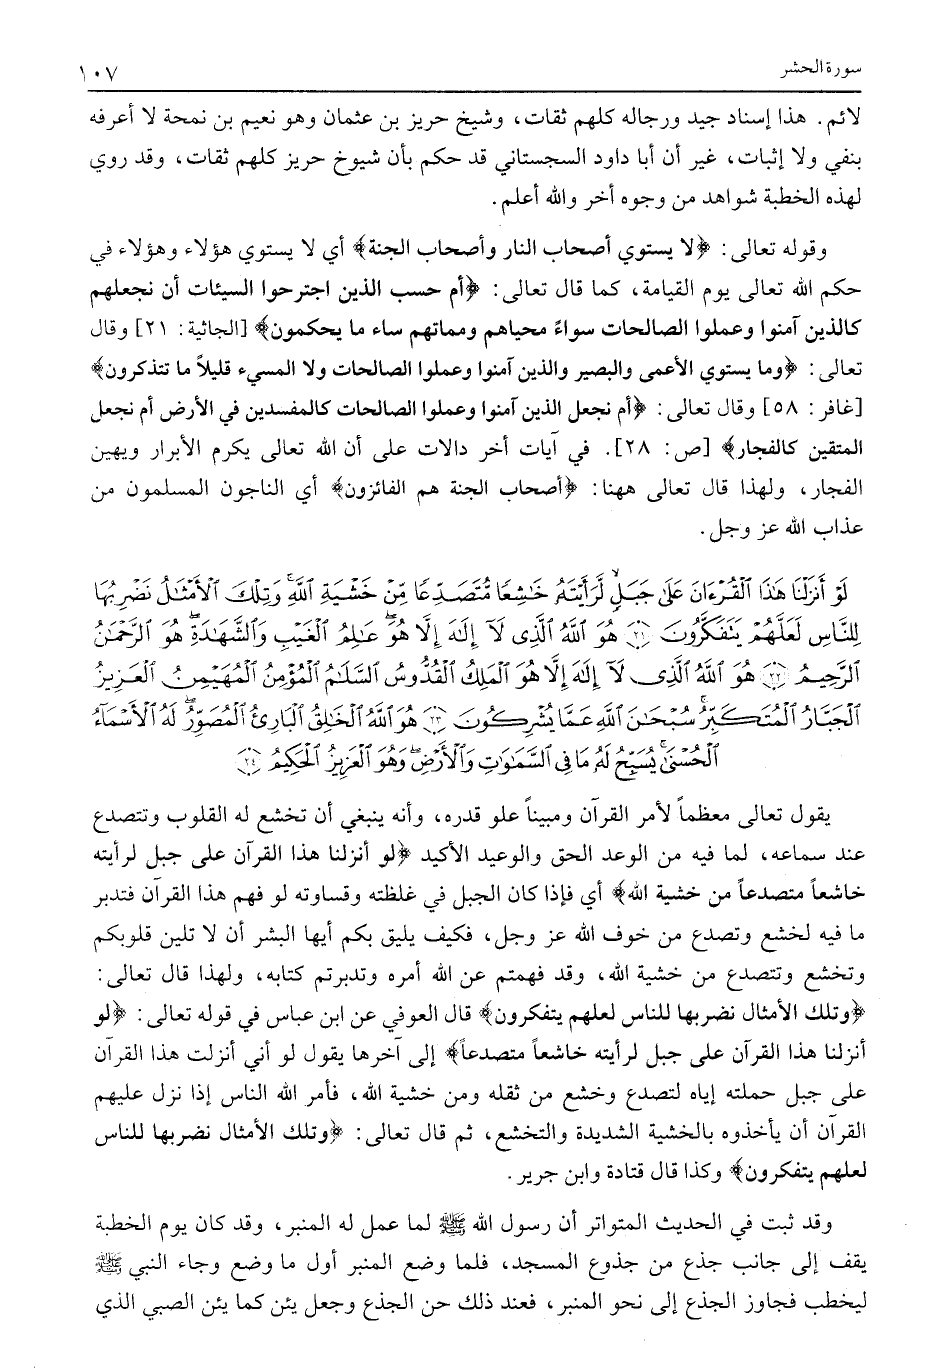 سورة الحشر ١٠٧
لائم. هذا إسناد جيد ورجاله كلهم ثقات، وشيخ حريز بن عثمان وهو نعيم بن نمحة لا أعرفه
بنفي ولا إثبات، غير أن أبا داود السجستاني قد حكم بأن شيوخ حريز كلهم ثقات، وقد روي
لهذه الخطبة شواهد من وجوه أخر والله أعلم.
وقوله تعالى: ﴿لا يستوي أصحاب النار وأصحاب الجنة﴾ أي لا يستوي هؤلاء وهؤلاء في
حكم الله تعالى يوم القيامة، كما قال تعالى: ﴿أم حسب الذين اجترحوا السيئات أن نجعلهم
كالذين آمنوا وعملوا الصالحات سواءً محياهم ومماتهم ساء ما يحكمون﴾ [الجاثية: ٢١] وقال
تعالى: ﴿وما يستوي الأعمى والبصير والذين آمنوا وعملوا الصالحات ولا المسيء قليلاً ما تتذكرون﴾
[غافر: ٥٨] وقال تعالى: ﴿أم نجعل الذين آمنوا وعملوا الصالحات كالمفسدين في الأرض أم نجعل
المتقين كالفجار﴾ [ص: ٢٨]. في آيات أخر دالات على أن الله تعالى يكرم الأبرار ويهين
الفجار، ولهذا قال تعالى ههنا: ﴿أصحاب الجنة هم الفائزون﴾ أي الناجون المسلمون من
عذاب الله عز وجل.
لَوْ أَنزَلْنَا هَٰذَا ٱلْقُرْءَانَ عَلَىٰ جَبَلٍ لَّرَأَيْتَهُۥ خَٰشِعًا مُّتَصَدِّعًا مِّنْ خَشْيَةِ ٱللَّهِ ۚ وَتِلْكَ ٱلْأَمْثَٰلُ نَضْرِبُهَا
لِلنَّاسِ لَعَلَّهُمْ يَتَفَكَّرُونَ ﴿٢١﴾ هُوَ ٱللَّهُ ٱلَّذِى لَآ إِلَٰهَ إِلَّا هُوَ ۖ عَٰلِمُ ٱلْغَيْبِ وَٱلشَّهَٰدَةِ ۖ هُوَ ٱلرَّحْمَٰنُ
ٱلرَّحِيمُ ﴿٢٢﴾ هُوَ ٱللَّهُ ٱلَّذِى لَآ إِلَٰهَ إِلَّا هُوَ ٱلْمَلِكُ ٱلْقُدُّوسُ ٱلسَّلَٰمُ ٱلْمُؤْمِنُ ٱلْمُهَيْمِنُ ٱلْعَزِيزُ
ٱلْجَبَّارُ ٱلْمُتَكَبِّرُ ۚ سُبْحَٰنَ ٱللَّهِ عَمَّا يُشْرِكُونَ ﴿٢٣﴾ هُوَ ٱللَّهُ ٱلْخَٰلِقُ ٱلْبَارِئُ ٱلْمُصَوِّرُ ۖ لَهُ ٱلْأَسْمَآءُ
ٱلْحُسْنَىٰ ۚ يُسَبِّحُ لَهُۥ مَا فِى ٱلسَّمَٰوَٰتِ وَٱلْأَرْضِ ۖ وَهُوَ ٱلْعَزِيزُ ٱلْحَكِيمُ ﴿٢٤﴾
يقول تعالى معظماً لأمر القرآن ومبيناً علو قدره، وأنه ينبغي أن تخشع له القلوب وتتصدع
عند سماعه، لما فيه من الوعد الحق والوعيد الأكيد ﴿لو أنزلنا هذا القرآن على جبل لرأيته
خاشعاً متصدعاً من خشية الله﴾ أي فإذا كان الجبل في غلظته وقساوته لو فهم هذا القرآن فتدبر
ما فيه لخشع وتصدع من خوف الله عز وجل، فكيف يليق بكم أيها البشر أن لا تلين قلوبكم
وتخشع وتتصدع من خشية الله، وقد فهمتم عن الله أمره وتدبرتم كتابه، ولهذا قال تعالى:
﴿وتلك الأمثال نضربها للناس لعلهم يتفكرون﴾ قال العوفي عن ابن عباس في قوله تعالى: ﴿لو
أنزلنا هذا القرآن على جبل لرأيته خاشعاً متصدعاً﴾ إلى آخرها يقول لو أني أنزلت هذا القرآن
على جبل حملته إياه لتصدع وخشع من ثقله ومن خشية الله، فأمر الله الناس إذا نزل عليهم
القرآن أن يأخذوه بالخشية الشديدة والتخشع، ثم قال تعالى: ﴿وتلك الأمثال نضربها للناس
لعلهم يتفكرون﴾ وكذا قال قتادة وابن جرير.
وقد ثبت في الحديث المتواتر أن رسول الله ﷺ لما عمل له المنبر، وقد كان يوم الخطبة
يقف إلى جانب جذع من جذوع المسجد، فلما وضع المنبر أول ما وضع وجاء النبي ﷺ
ليخطب فجاوز الجذع إلى نحو المنبر، فعند ذلك حن الجذع وجعل يئن كما يئن الصبي الذي